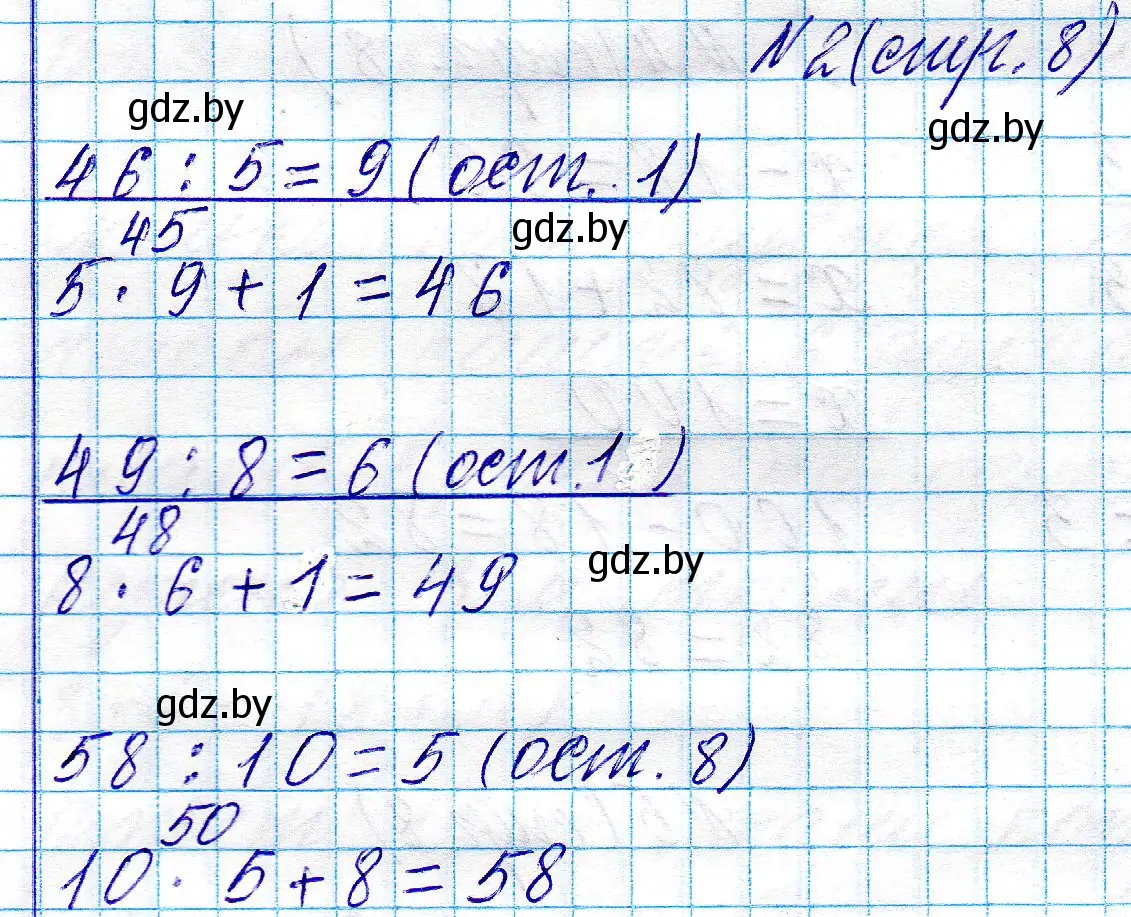 №2 (стр. 8)
gdz.by
gdz.by
46 : 5 = 9 (ост. 1)
45
gdz.by
5 · 9 + 1 = 46
49 : 8 = 6 (ост. 1)
48
8 · 6 + 1 = 49
gdz.by
gdz.by
58 : 10 = 5 (ост. 8)
50
10 · 5 + 8 = 58